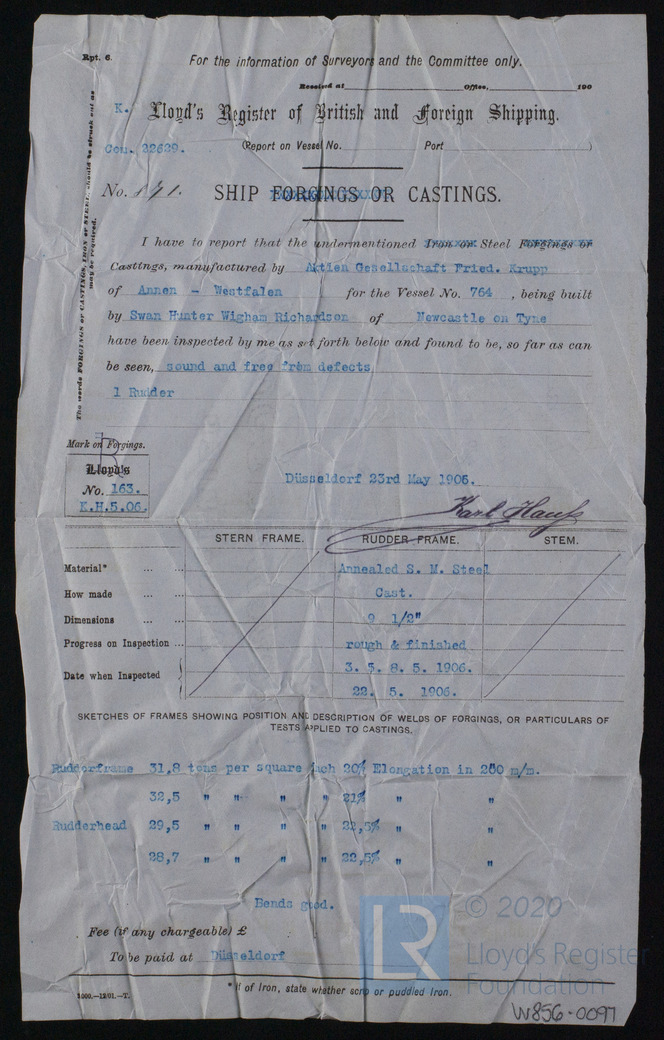 Rpt. 6.
For the information of Surveyors and the Committee only.
Received at Office, 190
K. Lloyd's Register of British and Foreign Shipping.
Com. 22629. (Report on Vessel No. Port )
No. 171. SHIP FORGINGS OR CASTINGS.
The words FORGINGS or CASTINGS, IRON or STEEL, should be struck out as
may be required.
I have to report that the undermentioned Iron or Steel Forgings or
Castings, manufactured by Aktien Gesellschaft Fried. Krupp
of Annen - Westfalen for the Vessel No. 764 , being built
by Swan Hunter Wigham Richardson of Newcastle on Tyne
have been inspected by me as set forth below and found to be, so far as can
be seen, sound and free from defects
1 Rudder
Mark on Forgings.
Lloyd's
No. 163.
K.H.5.06.
Düsseldorf 23rd May 1906.
Karl Hauß
STERN FRAME. RUDDER FRAME. STEM.
Material* ... ... Annealed S. M. Steel
How made ... ... Cast.
Dimensions ... ... 9 1/2"
Progress on Inspection ... rough & finished
Date when Inspected 3. 5. 8. 5. 1906.
22. 5. 1906.
SKETCHES OF FRAMES SHOWING POSITION AND DESCRIPTION OF WELDS OF FORGINGS, OR PARTICULARS OF
TESTS APPLIED TO CASTINGS.
Rudderframe 31,8 tons per square inch 20% Elongation in 200 m/m.
32,5 " " " " 21% " "
Rudderhead 29,5 " " " " 22,5% " "
28,7 " " " " 22,5% " "
Bends good.
Fee (if any chargeable) £
To be paid at Düsseldorf
* If of Iron, state whether scrap or puddled Iron.
1000.—12/01.—T.
LR © 2020
Lloyd's Register
Foundation
W856-0097